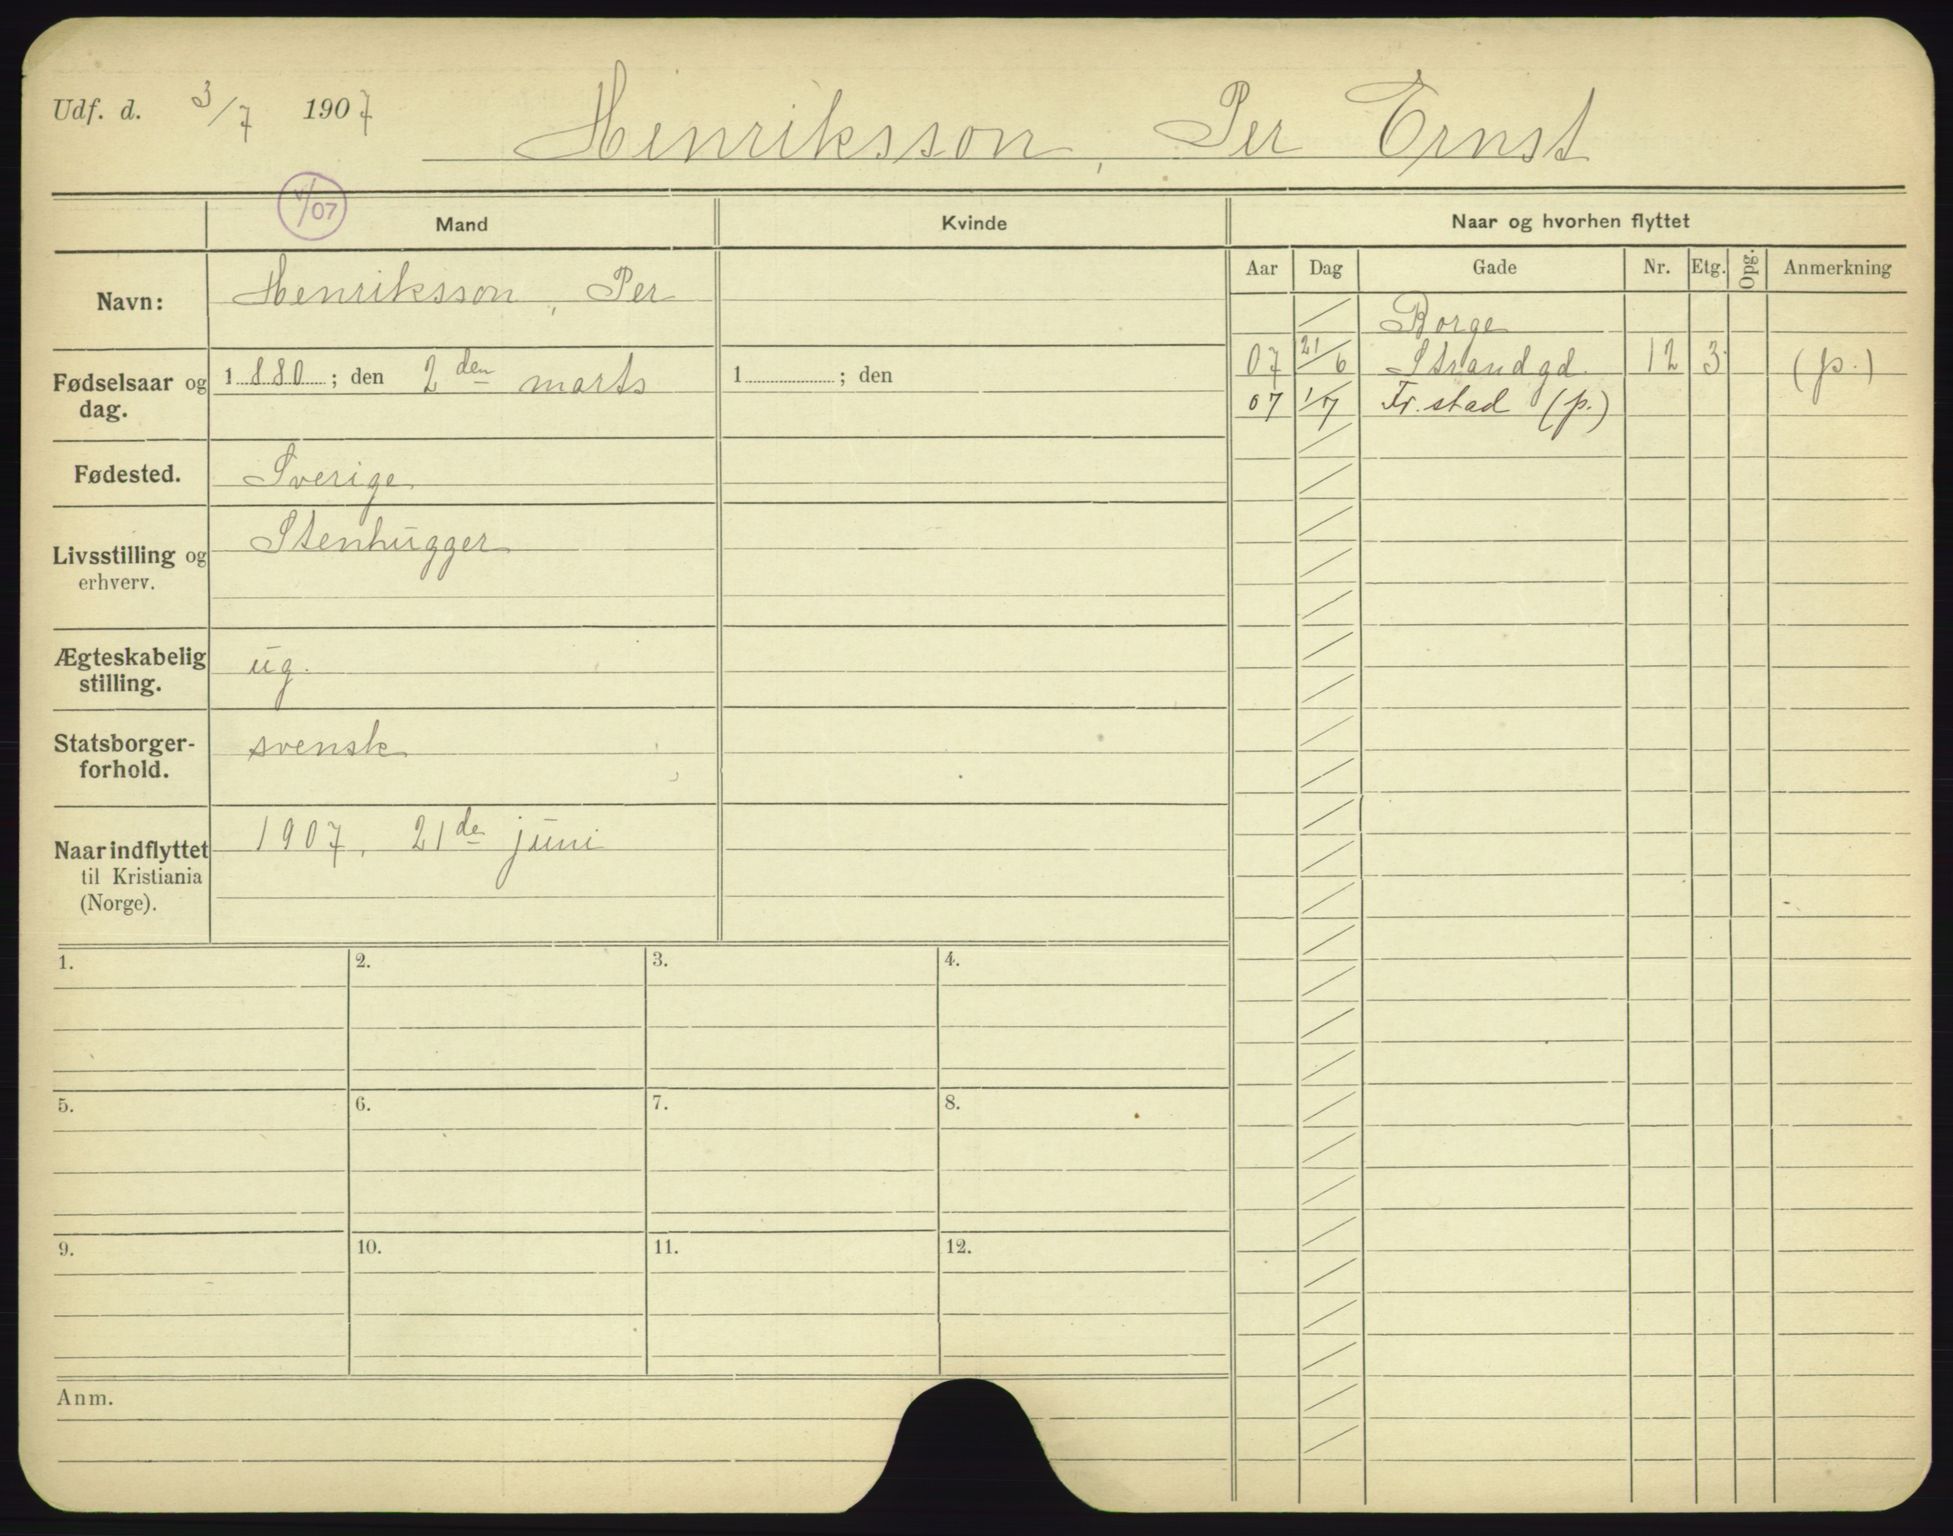 Udf. d. 3/7 1907 Henriksson, Per Ernst
V/07
Mand Kvinde Naar og hvorhen flyttet
Aar Dag Gade Nr. Etg. Opg. Anmerkning
Navn: Henriksson, Per
Borge
07 21/6 Strandgd. 12 3 (p.)
07 1/7 Fr.stad (p.)
Fødselsaar og dag. 1880; den 2den marts 1 ; den
Fødested. Sverige
Livsstilling og erhverv. Stenhugger
Ægteskabelig stilling. ug.
Statsborgerforhold. svensk
Naar indflyttet til Kristiania (Norge). 1907, 21de juni
1. 2. 3. 4.
5. 6. 7. 8.
9. 10. 11. 12.
Anm.